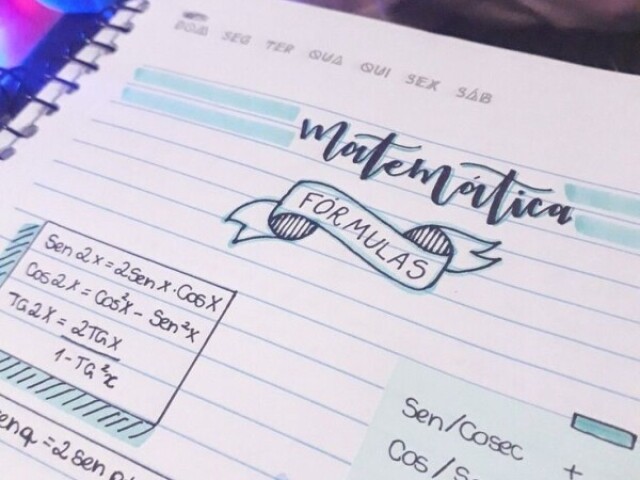 DOM SEG TER QUA QUI SEX SÁB
matemática
FÓRMULAS
Sen 2x = 2Sen x · Cos x
Cos 2x = Cos²x - Sen²x
TG 2x = 2TG x
1 - TG²x
= 2 sen
Sen/Cosec
Cos /
+